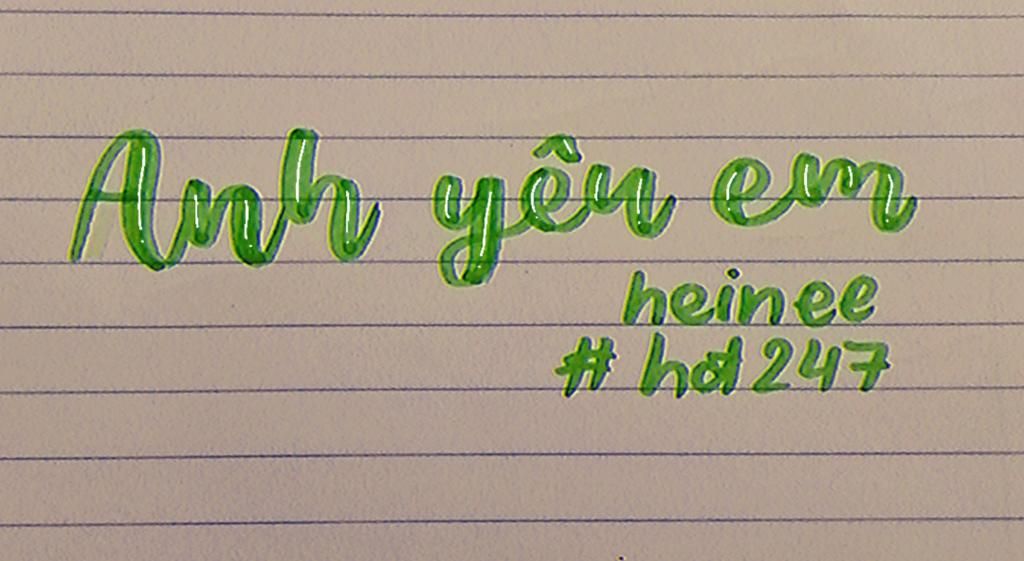 Anh yêu em
heinee
# hot247